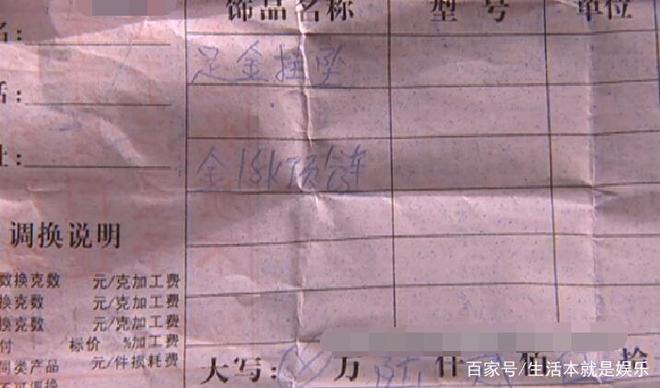 饰品名称 型号 单位
名：
足金挂坠
话：
址：
金18k项链
调换说明
数换克数 元/克加工费
换克数 元/克加工费
换克数 元/克加工费
付 标价 %加工费
同类产品 元/件损耗费
大写： 万 仟 佰 拾
百家号/生活本就是娱乐